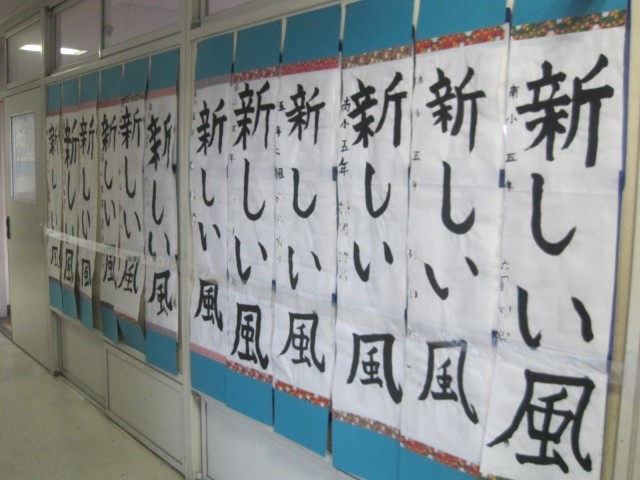 新しい風
南小五年
新しい風
小五年
新しい風
南小五年
新しい風
新しい風
新しい風
新しい風
新しい風
新しい風
新しい風
新しい風
新しい風